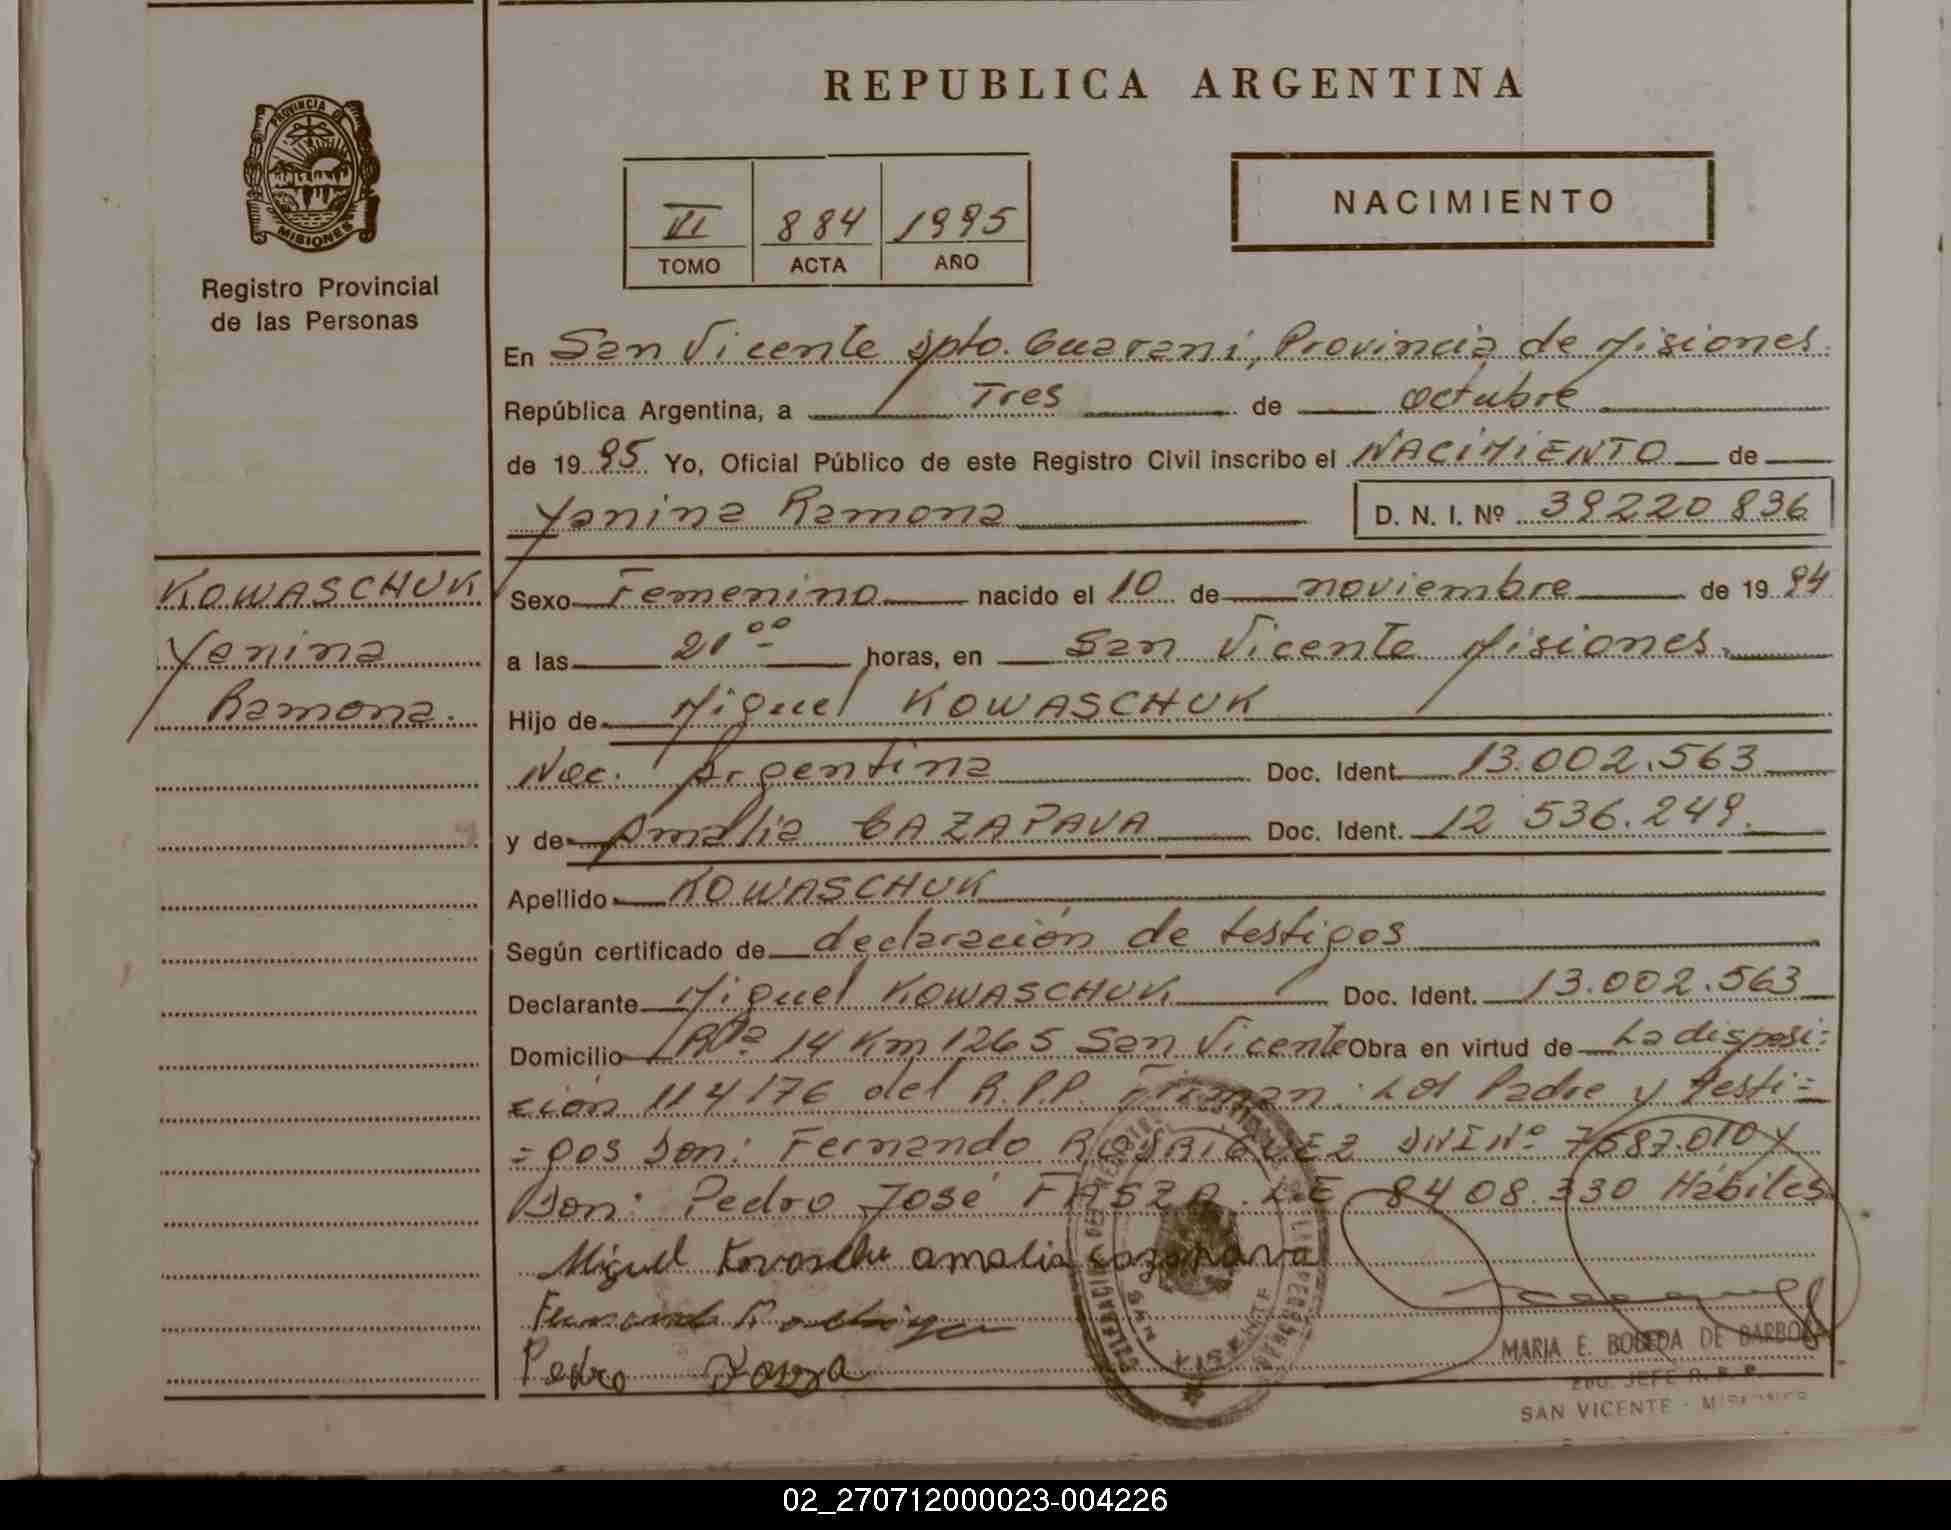 REPUBLICA ARGENTINA
PROVINCIA DE
MISIONES
Registro Provincial
de las Personas
VI 884 1995
TOMO ACTA AÑO
NACIMIENTO
En San Vicente Dpto. Guarani, Provincia de Misiones.
República Argentina, a Tres de octubre
de 1995 Yo, Oficial Público de este Registro Civil inscribo el NACIMIENTO de
Yanina Ramona D. N. I. Nº 39220836
KOWASCHUK
Yanina
Ramona.
Sexo Femenino nacido el 10 de noviembre de 1994
a las 21ºº horas, en San Vicente Misiones.
Hijo de Miguel KOWASCHUK
Nac. Argentina Doc. Ident. 13.002.563
y de Amalia CAZAPAVA Doc. Ident. 12 536.249.
Apellido KOWASCHUK
Según certificado de declaración de testigos
Declarante Miguel KOWASCHUK Doc. Ident. 13.002.563
Domicilio Rta 14 Km 1265 San Vicente Obra en virtud de La disposi=
ción 114/76 del R.P.P. Firman: el Padre y testi=
=gos Don: Fernando RODRIGUEZ DNI Nº 7587.010 y
Don: Pedro José FASZA L.E 8408.330 Hábiles
Miguel amalia cazapava
Pedro
SAN VICENTE
MARIA E. BOBEDA DE BARBO
2DO. JEFE R. P. P.
SAN VICENTE - MISIONES
02_270712000023-004226